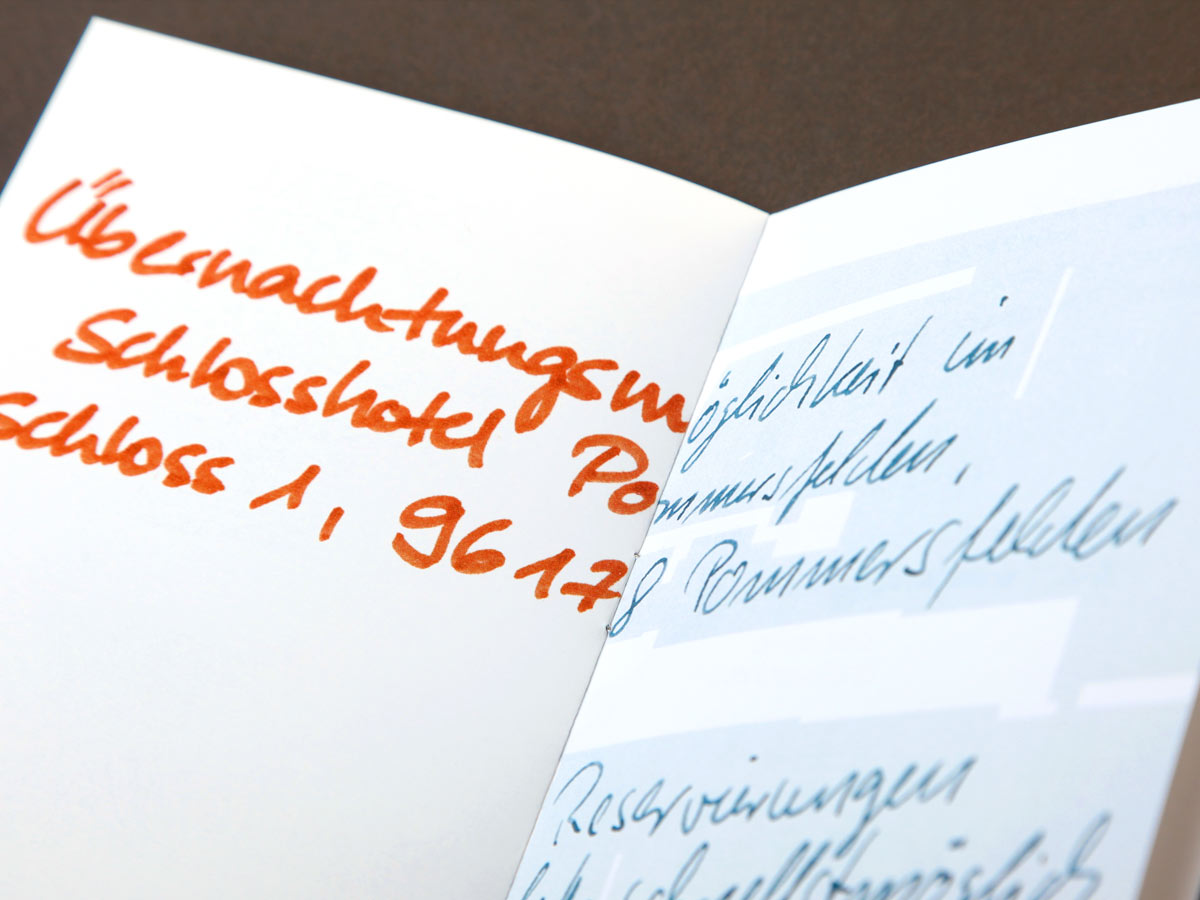 Übernachtungsmöglichkeit im
Schlosshotel Pommersfelden,
Schloss 1, 96178 Pommersfelden
Reservierungen
schnellstmöglich